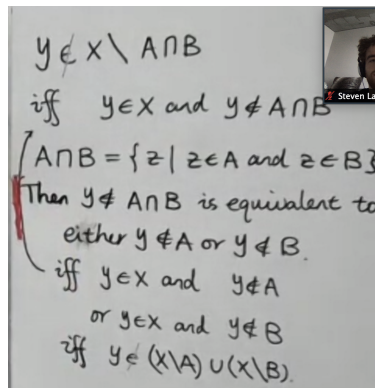 y ∉ X \ A∩B
iff y∈X and y∉A∩B
A∩B = {z | z∈A and z∈B}
Then y∉A∩B is equivalent to
either y∉A or y∉B.
iff y∈X and y∉A
or y∈X and y∉B
iff y∈(X\A)∪(X\B).
Steven La